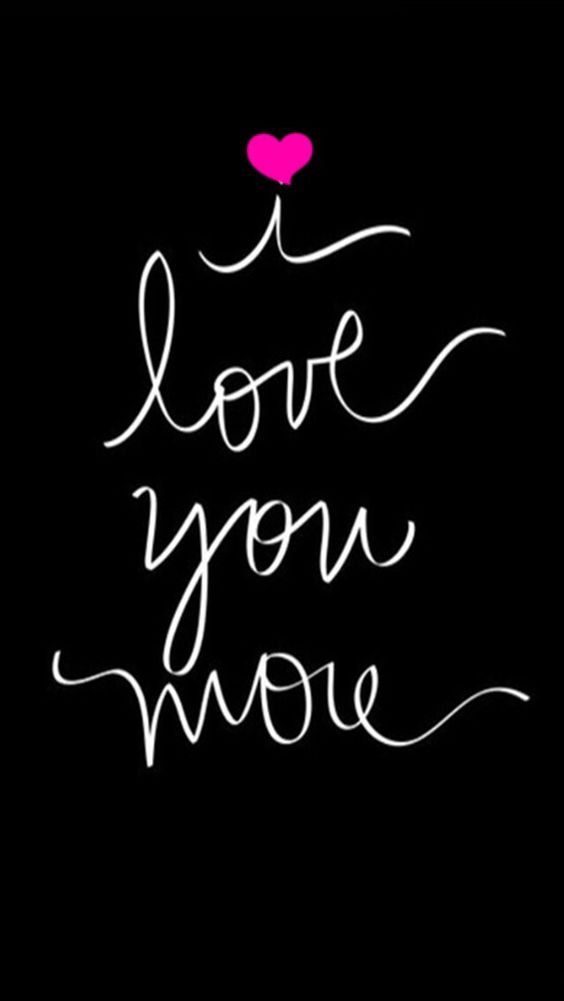 i
love
you
more